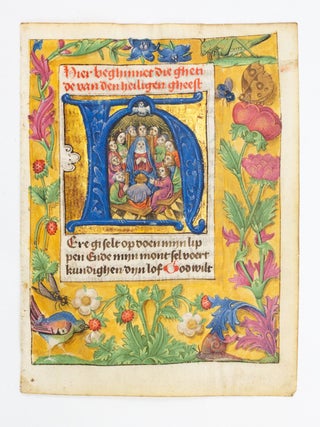 Hier beghinnet die gheti
de van den heiligen gheest
H
Ere gi selt op doen mijn lip
pen Ende mijn mont sel voert
kundighen dijn lof God wilt